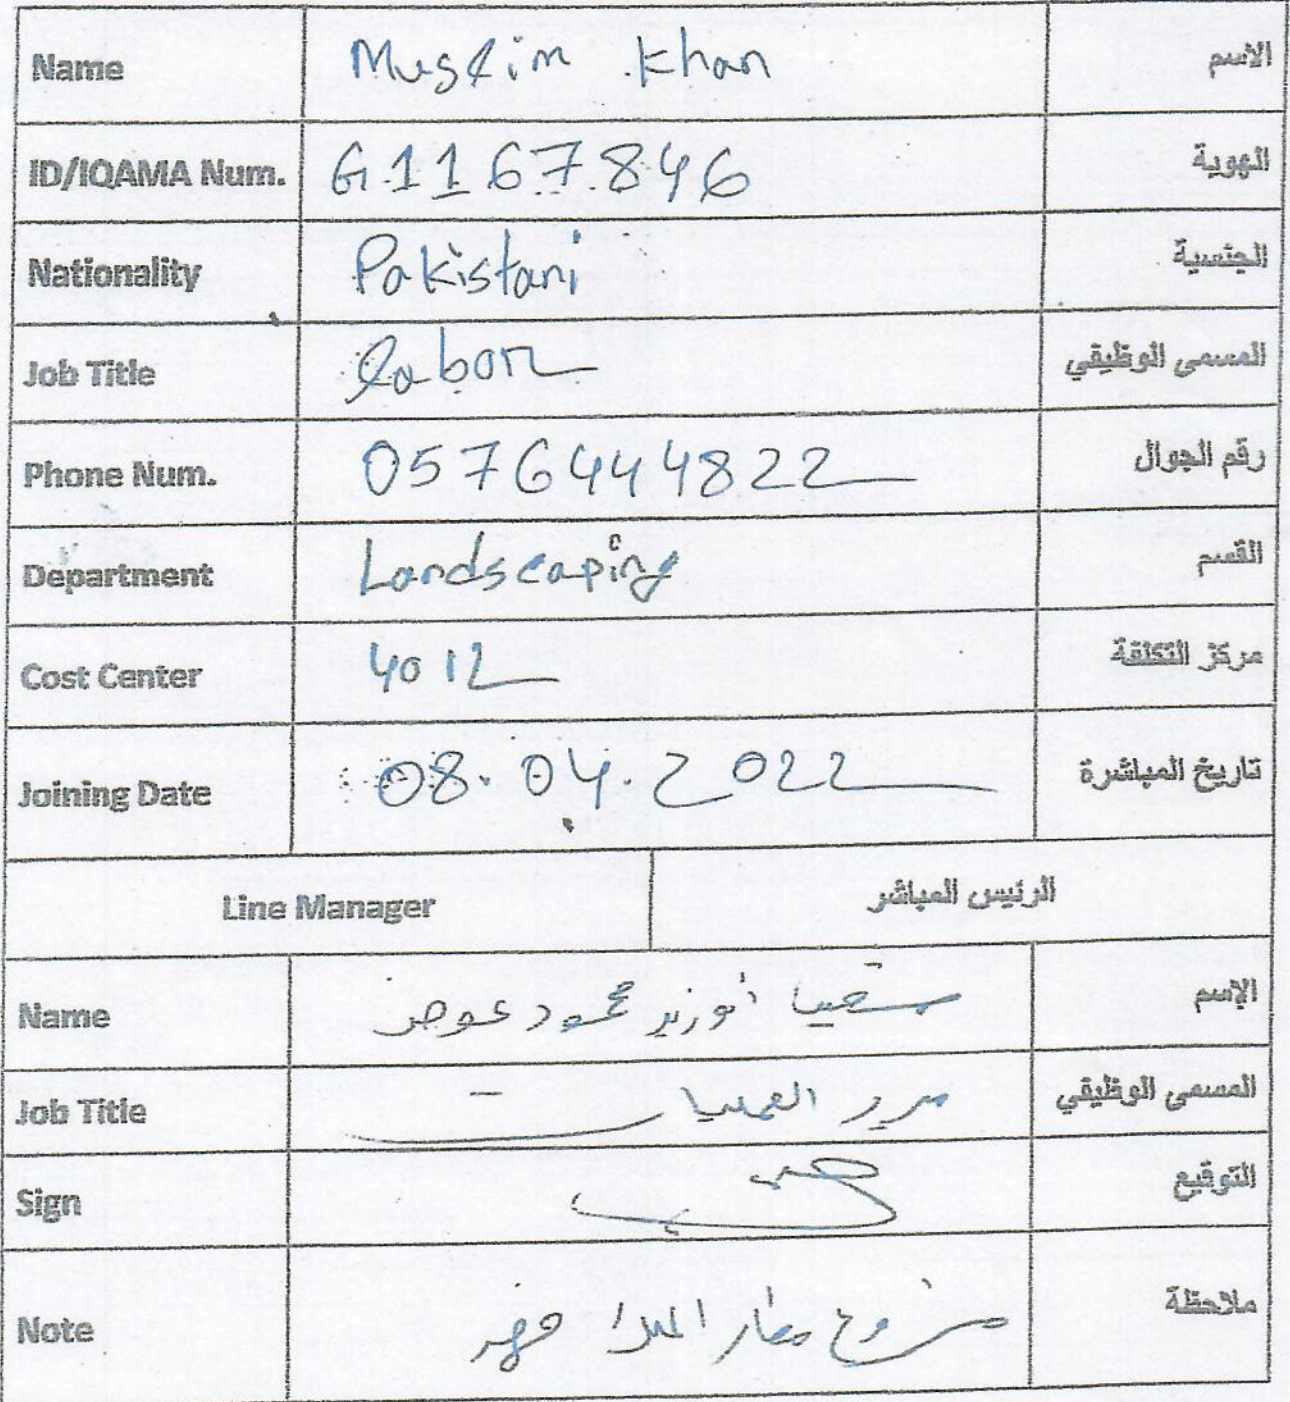 Name Muslim Khan الاسم
ID/IQAMA Num. G1167846 الهوية
Nationality Pakistani الجنسية
Job Title labor المسمى الوظيفي
Phone Num. 0576444822 رقم الجوال
Department Landscaping القسم
Cost Center 4012 مركز التكلفة
Joining Date 08.04.2022 تاريخ المباشرة
Line Manager الرئيس المباشر
Name محمود عوض الإسم
Job Title مدير العمليات المسمى الوظيفي
Sign التوقيع
Note مشروع مطار الملك فهد ملاحظة